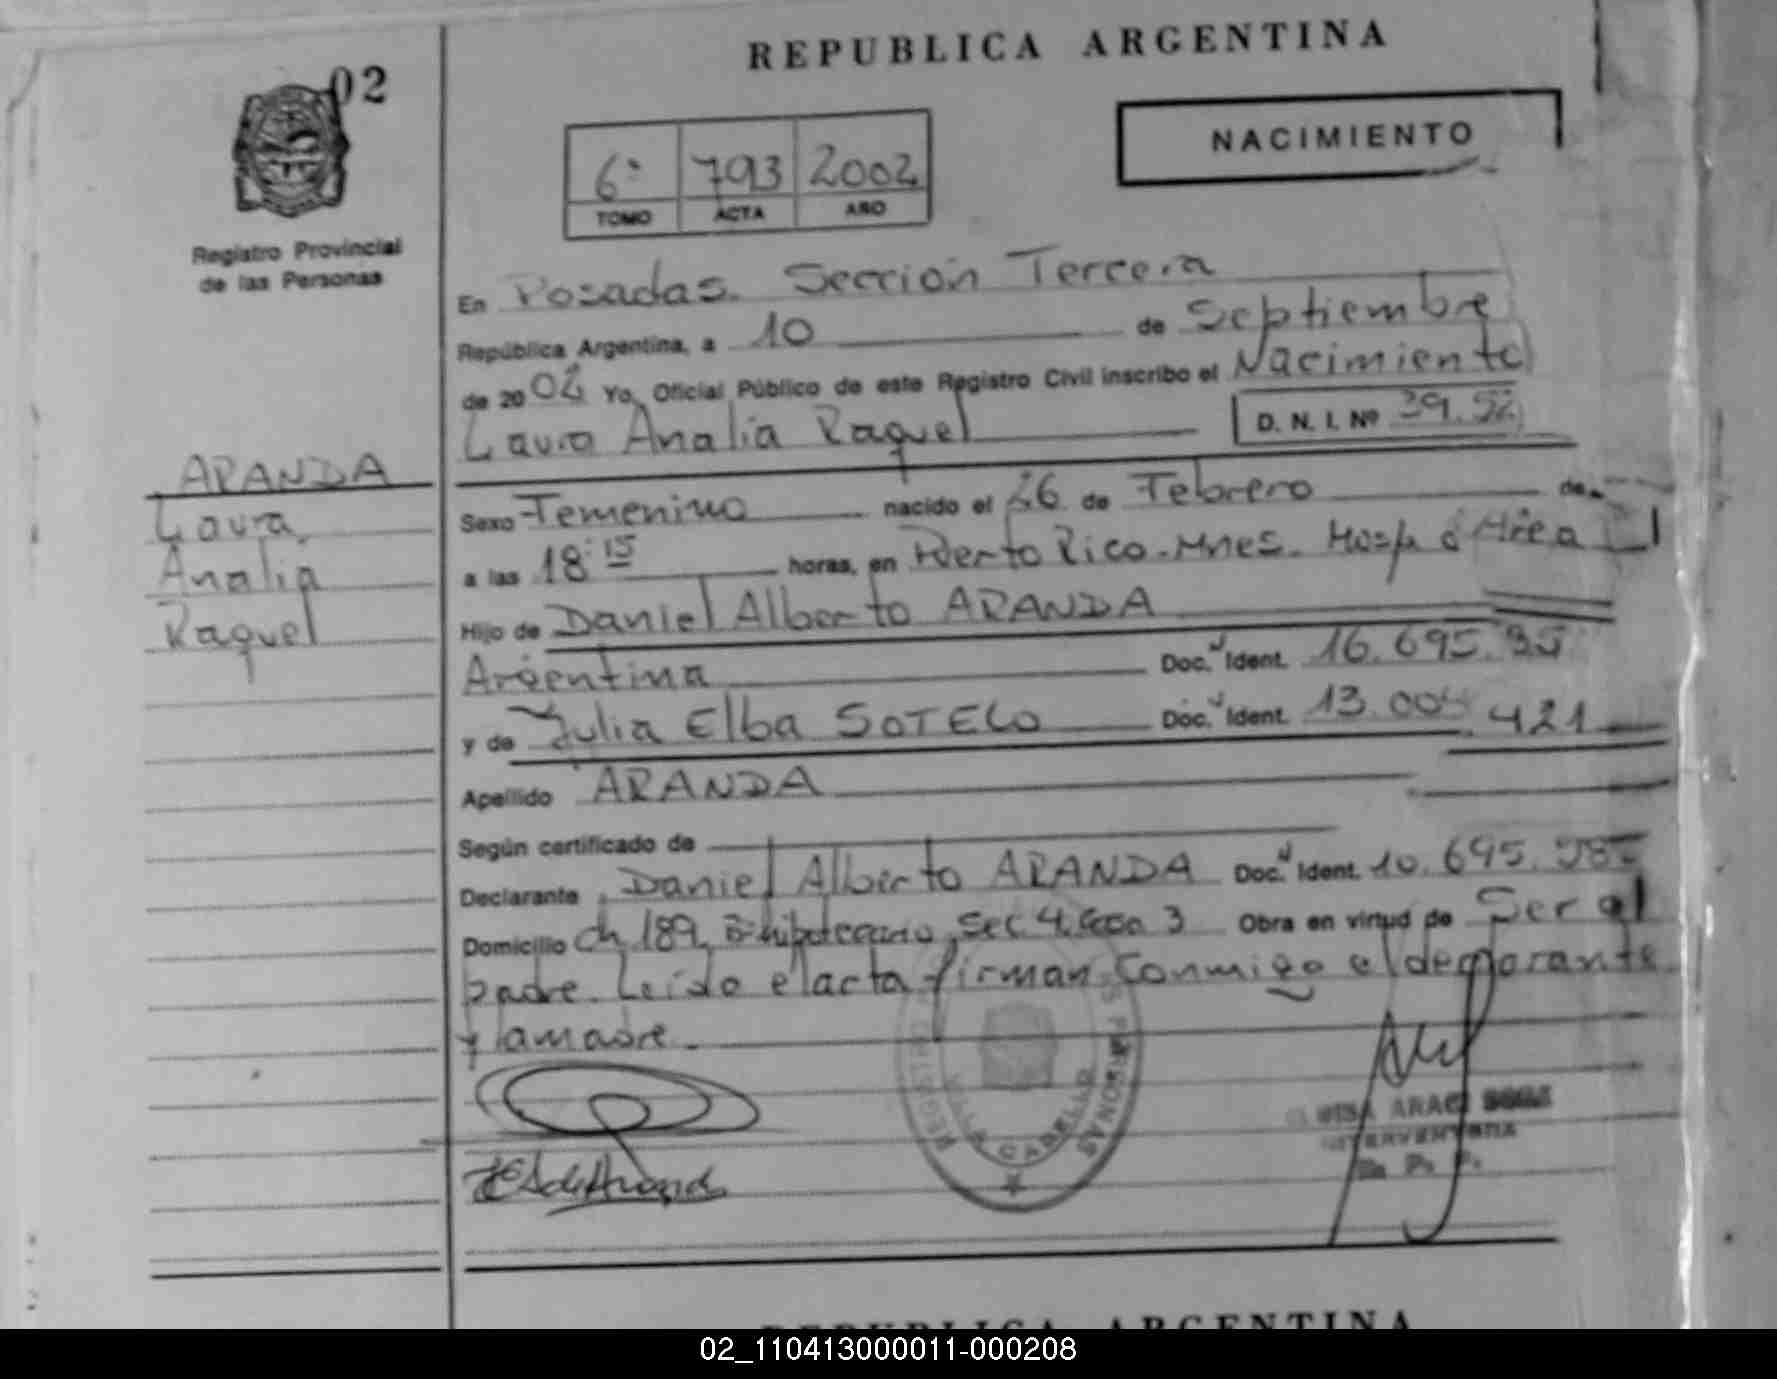 REPUBLICA ARGENTINA
02
NACIMIENTO
6º 793 2002
TOMO ACTA AÑO
Registro Provincial
de las Personas
En Posadas. Sección Tercera
República Argentina, a 10 de Septiembre
de 2002 Yo, Oficial Público de este Registro Civil inscribo el Nacimiento
Laura Analia Raquel D. N. I. Nº 39.52
ARANDA
Laura
Analia
Raquel
Sexo Femenino nacido el 26 de Febrero de
a las 18:15 horas, en Puerto Rico. Mnes. Hosp. Area
Hijo de Daniel Alberto ARANDA
Argentina Doc. Ident. 16.695.
y de Julia Elba SOTELO Doc. Ident. 13.004.421
Apellido ARANDA
Según certificado de
Declarante Daniel Alberto ARANDA Doc. Ident.
Domicilio Ch 189, Bº hipotecario, Sec 4, Casa 3 Obra en virtud de Ser el
padre. Leído el acta firman conmigo el
y la madre.
REGISTRO PERSONAS
VILLA CABELLO
REPUBLICA ARGENTINA
02_110413000011-000208